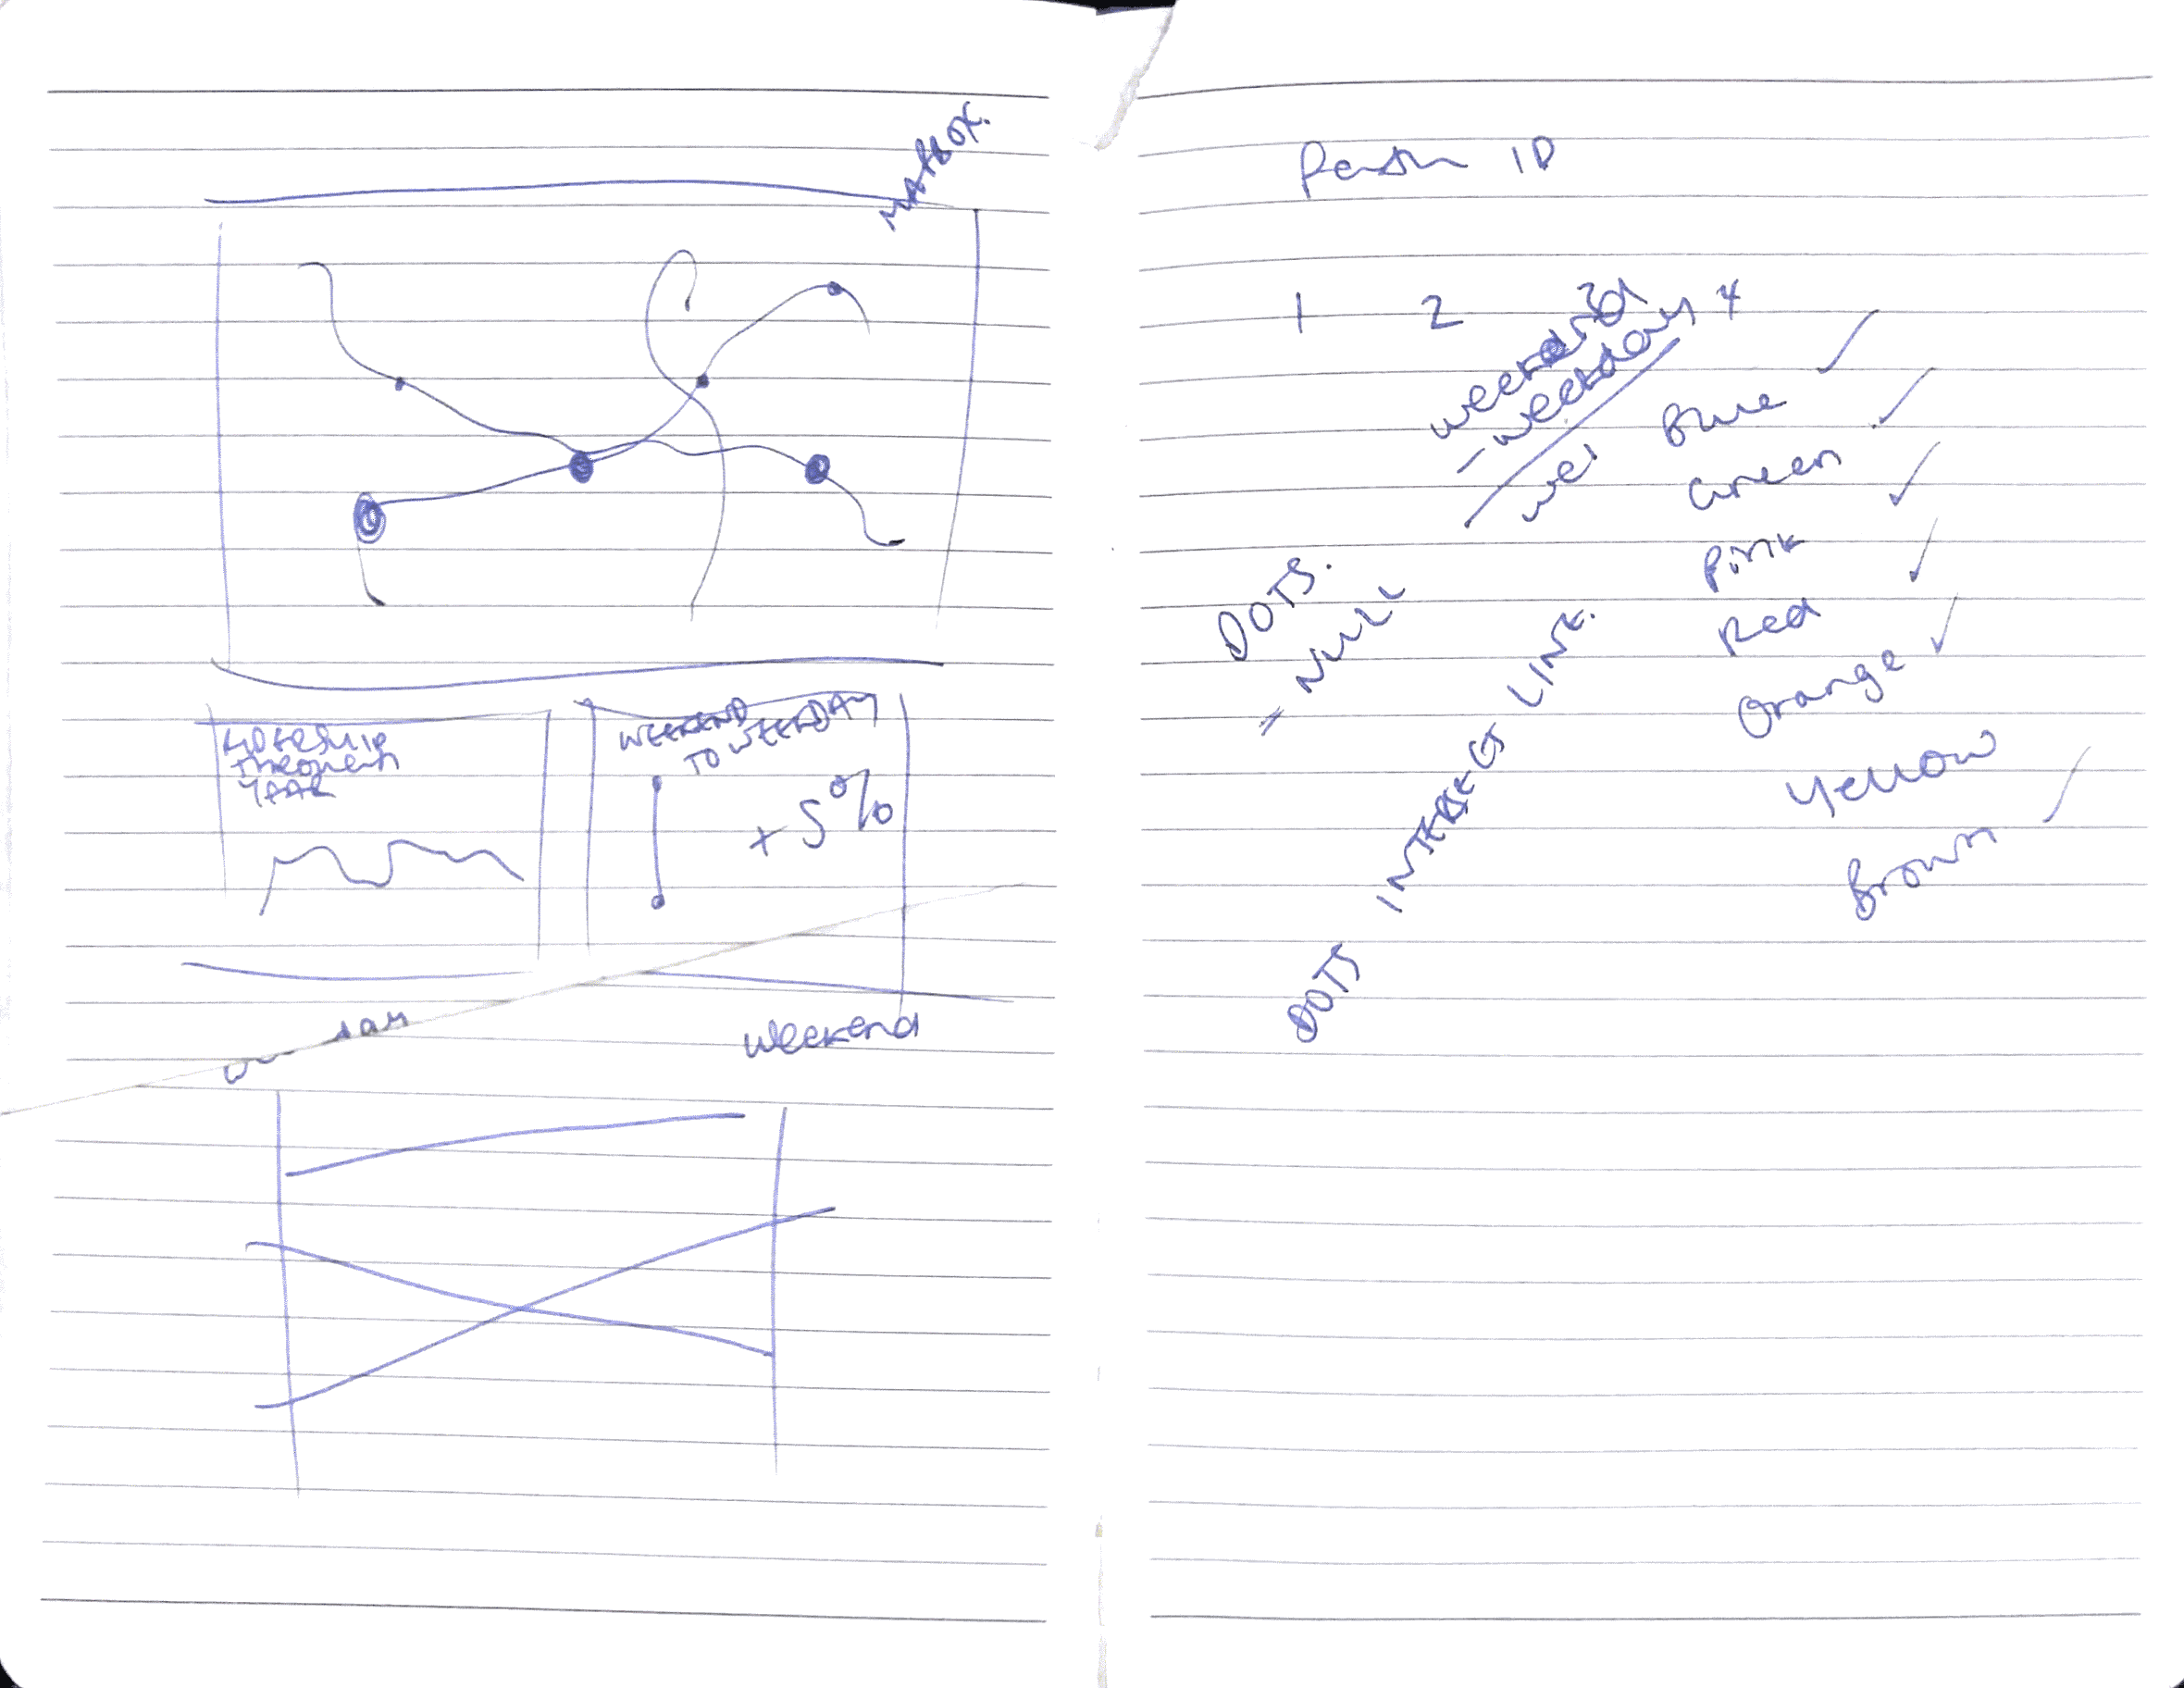 MAPBOX.
RIDERSHIP
THROUGH
YEAR
WEEKEND
TO WEEKDAY
+5%
day
weekend
ID
1 2 3 4
weekend
- weekday
DOTS.
= NULL
DOTS INTERSECT LINK.
Blue ✓
Green ✓
Pink ✓
Red ✓
Orange ✓
Yellow
Brown ✓